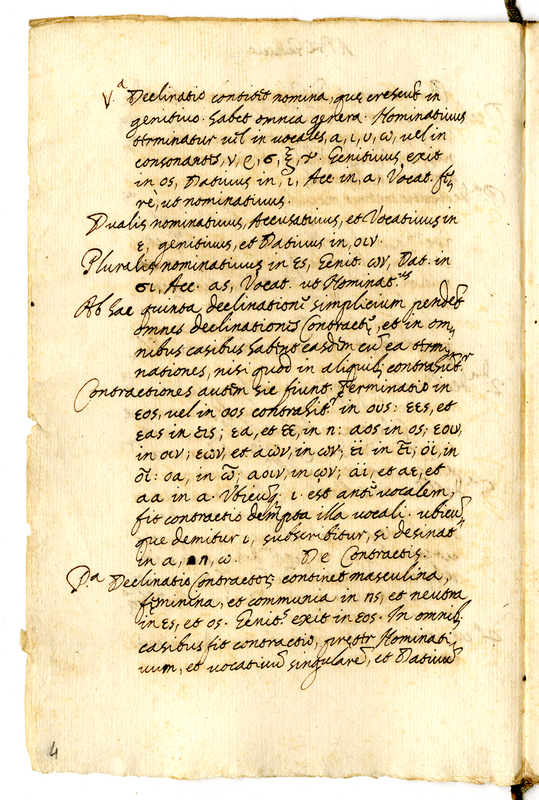 V.ª Declinatio continet nomina, quę crescūt in
genitiuo. habet omnia genera. Nominatiuus
terminatur uel in vocales, α, ι, υ, ω, vel in
consonantes, ν, ρ, σ, ξ, ψ. Genitiuus exit
in ος, Datiuus in, ι, Acc in, α, Vocat. ferè, ut nominatiuus.
Dualis nominatiuus, Accusatiuus, et Vocatiuus in
ε, genitiuus, et Datiuus in, οιν.
Pluralis nominatiuus in ες, Genit. ων, Dat. in
σι, Acc. ας, Vocat. vt Nominat.us
Ab hac quinta declinatione simplicium pendet
omnes declinationes Contractę, et in om
nibus casibus habent easdem cū ea termi
nationes, nisi quod in aliquib; contrahūtur
Contractiones autem sic fiunt. Terminatio in
εος, vel in οος contrahit.r in ους: εες, et
εας in εις; εα, et εε, in η: αος in ως; εοιν,
in οιν; εων, et αων, in ων; εϊ in εῖ; οϊ, in
οῖ: οα, in ῶ; αοιν, in ῳν; αι, et αε, et
αα in α. Vbicuq; ι. est ante vocalem,
fit contractio dempta illa vocali. ubicū
que demitur ι, subscribitur, si desinat
in α, η, ω. De Contractis.
P.ª Declinatio Contractor. continet masculina,
fęminina, et communia in ης, et neutra
in ες, et ος. Genit.s exit in εος. In omnib;
casibus fit contractio, pręter Nominati
uum, et uocatiuū singularē, et Datiuū
4